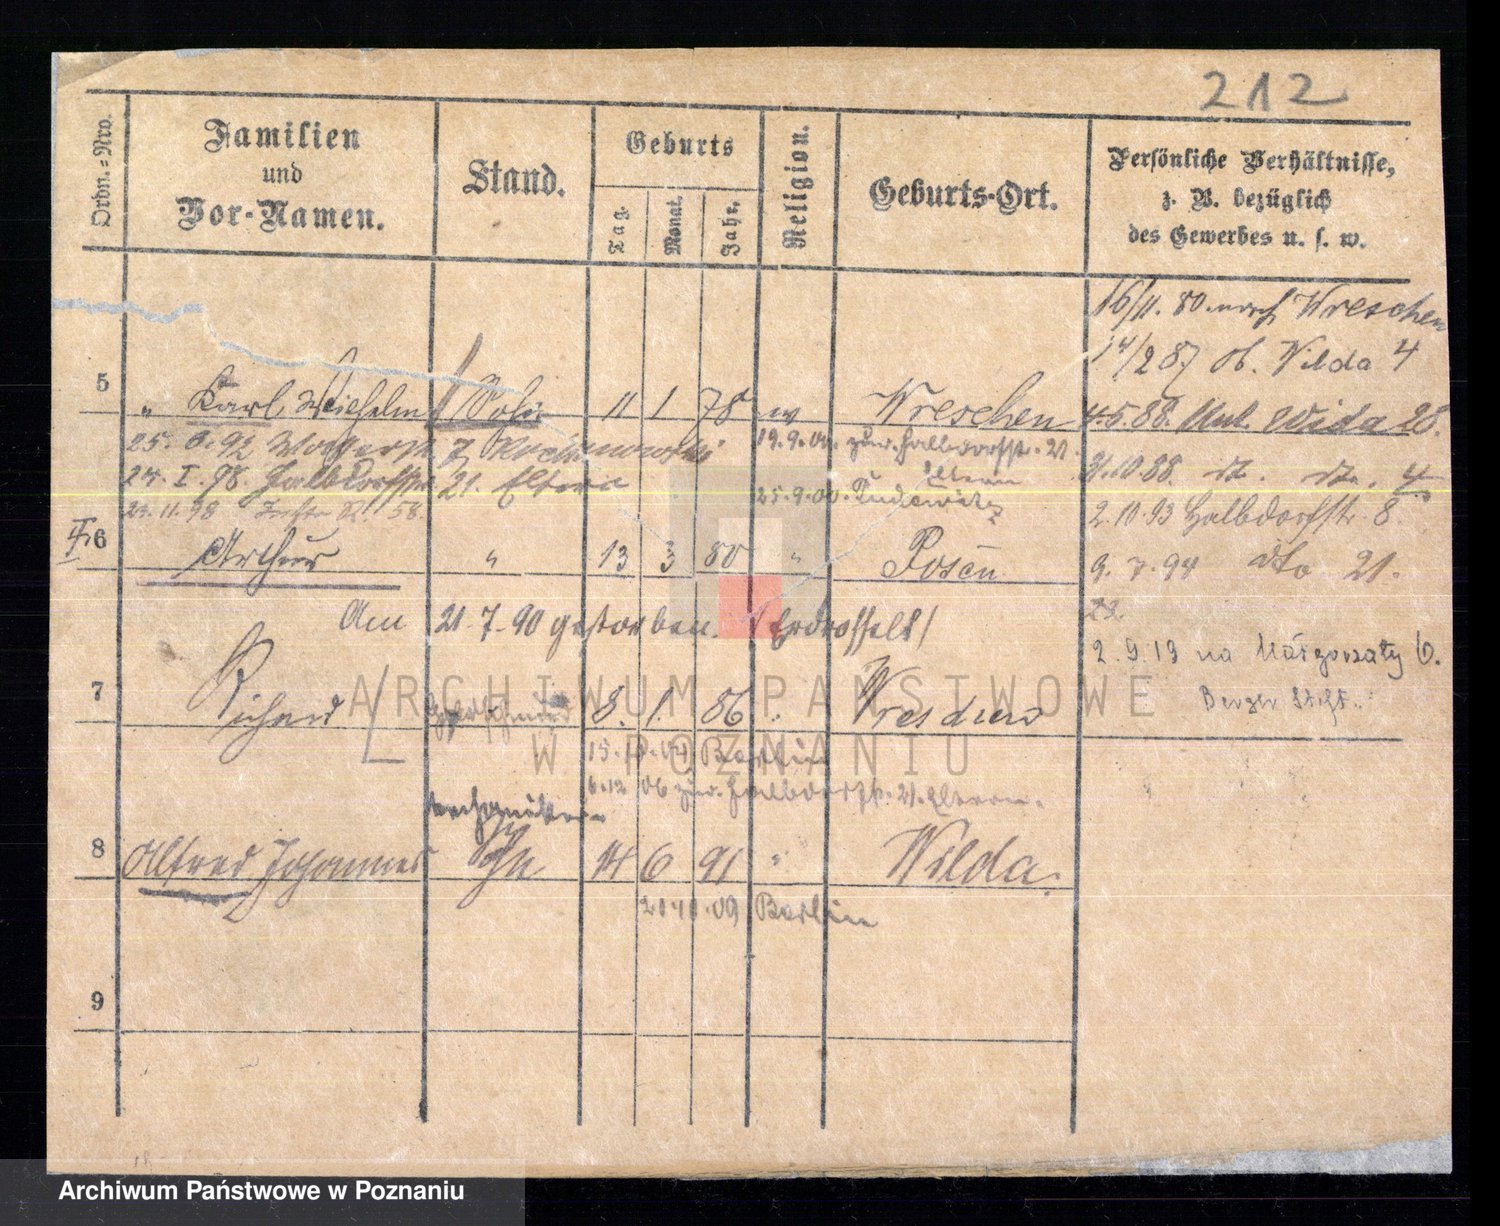 212
Ordn.=Nro.
Familien
und
Vor-Namen.
Stand.
Geburts
Tag.
Monat.
Jahr.
Religion.
Geburts-Ort.
Persönliche Verhältnisse,
z. B. bezüglich
des Gewerbes u. s. w.
16/11. 80. nach Wreschen
14/2 87 Ob. Wilda 4
5
„ Karl, Wilhelm Sohn 11 1 78 Wreschen
4.5.88. Unt. Wilda 28.
25. 92
19.9.00. zur. Halbdorfstr. 21.
Eltern
24. I. 98. Halbdorfstr. 21. Eltern
25.9.00. Pudewitz
31.10.88. 4.
23.11.98 58.
2.10.93 Halbdorfstr. 8.
6
Arthur „ 13 3 80 „ Posen
9.7.94 dto 21.
Am 21.7.90 gestorben. (Erdrosselt)
23.
2.9.19 na Małgorzaty 6.
Berger Stift.
7
Richard 8. 1. 86 Wreschen
ARCHIWUM PAŃSTWOWE
W POZNANIU
15. Berlin
6.12 06 zur. Halbdorfstr. 21. Eltern.
8
Alfred Johannes Sohn 14 6 91 „ Wilda.
09 Berlin
9
Archiwum Państwowe w Poznaniu